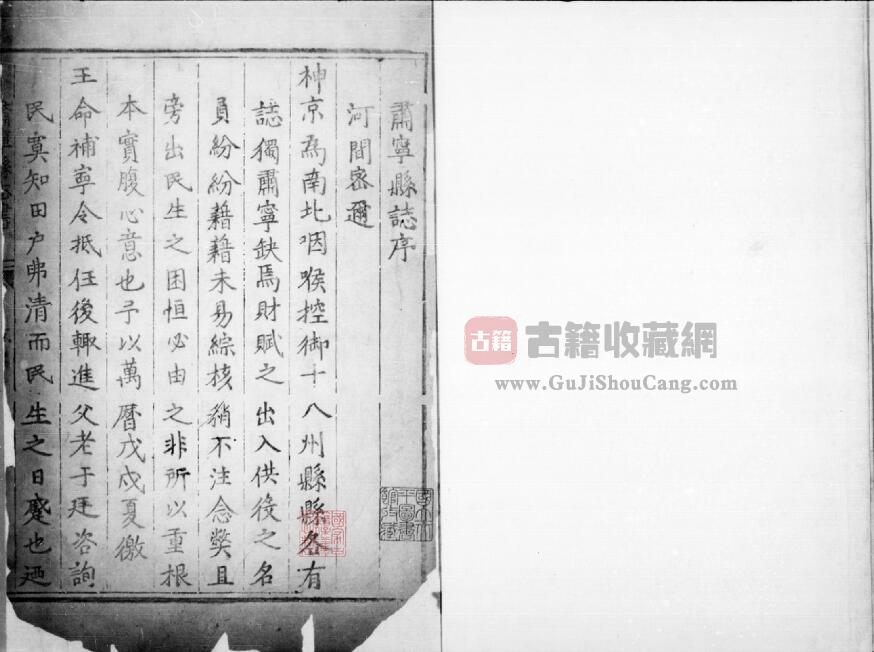 肅寧縣誌序
河間密邇
神京爲南北咽喉控御十八州縣縣各有
誌獨肅寧缺焉財賦之出入供役之名
員紛紛藉藉未易綜核稍不注念獘且
旁出民生之困恒必由之非所以重根
本實腹心意也予以萬曆戊戌夏徼
王命補寧令抵任後輙進父老于廷咨詢
民寞知田户弗清而民生之日蹙也廼
古籍
古籍收藏網
www.GuJiShouCang.com